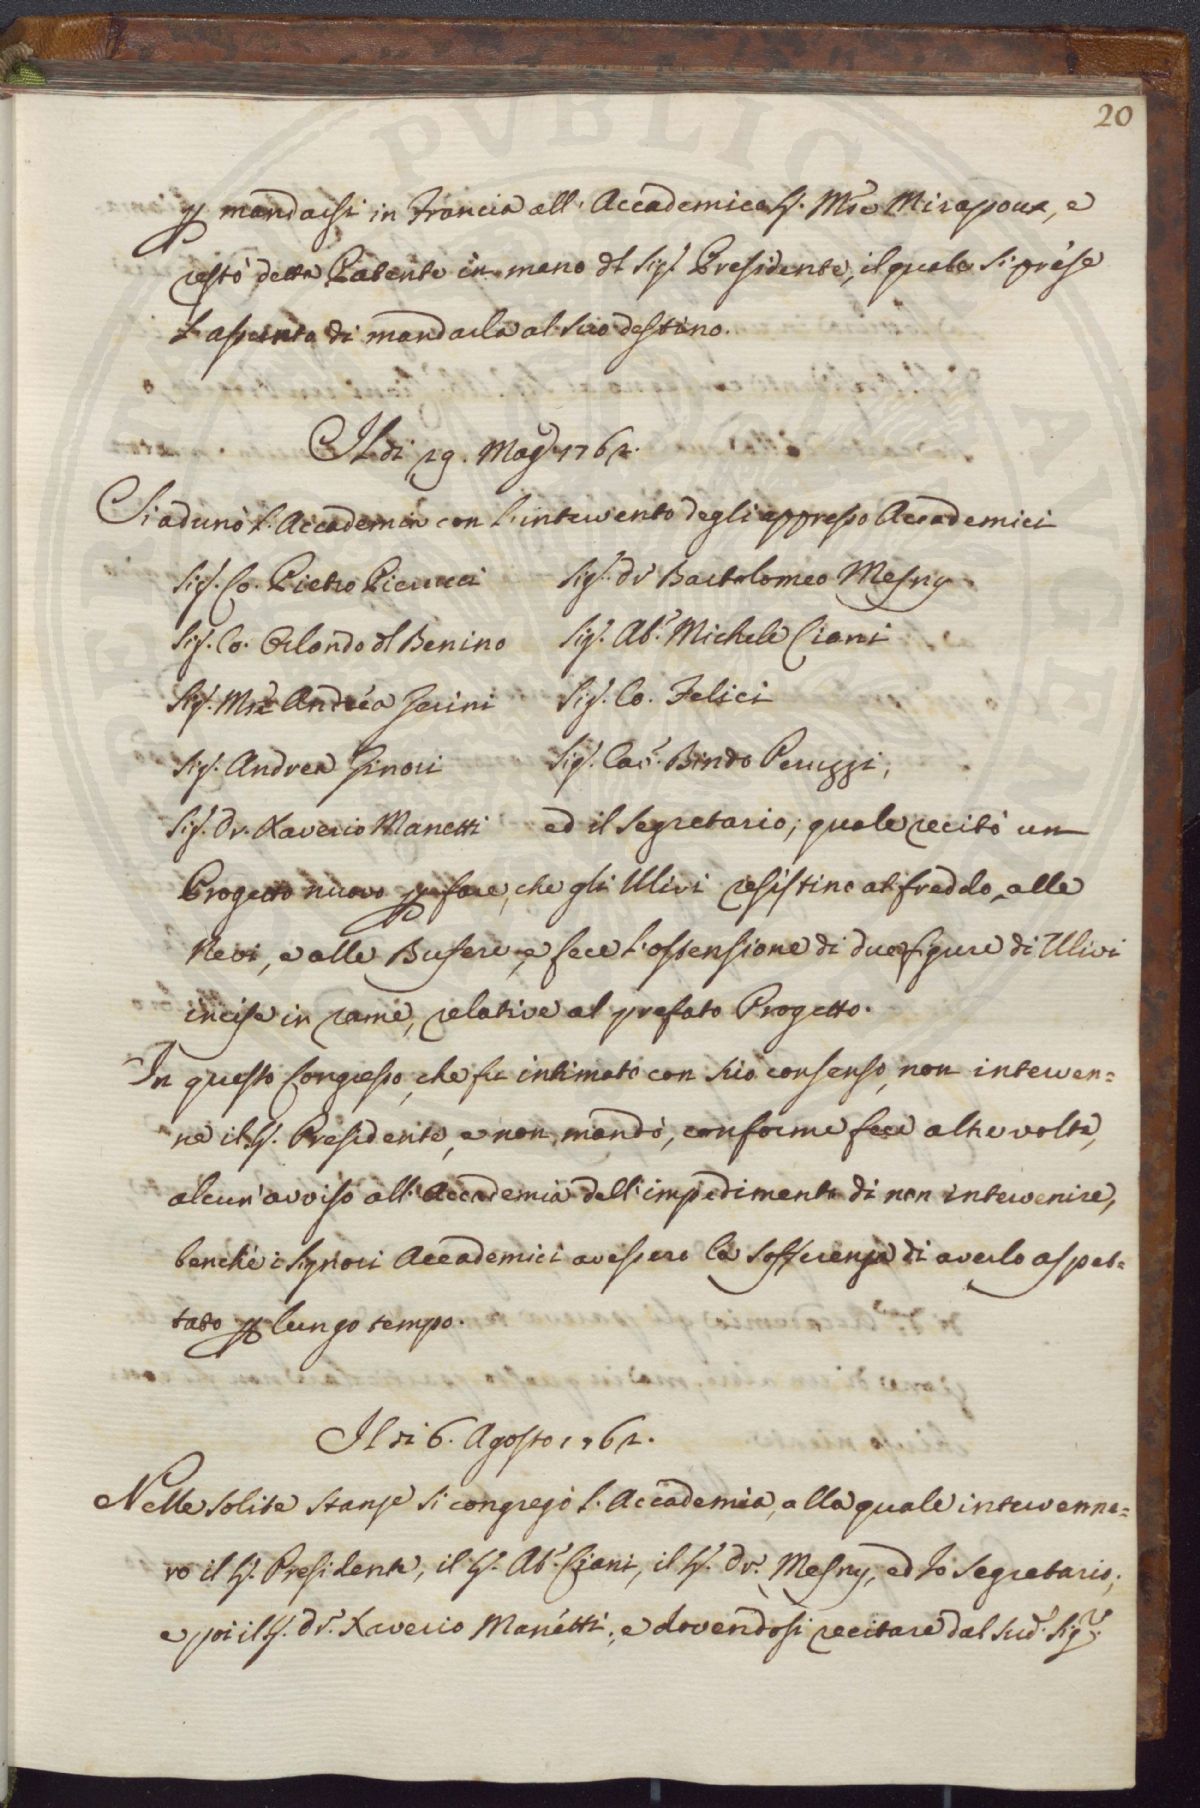 20
p mandarsi in Francia all' Accademico Sr. Mse Mirapoux, e
restò detta Patente in mano dl Sigr. Presidente, il quale si prese
l'assunto di mandarla al suo destino.
Il di 29. Magg. 1762.
Si adunò l'Accademia con l'intervento degli appresso Accademici
Sigr. Co. Pietro Pierucci
Sigr. Dr Bartolomeo Mesny
Sigr. Co. Orlando dl Benino
Sigr. Ab.e Michele Ciani
Sigr. Mse Andrea Gerini
Sigr. Co. Felici
Sigr. Andrea Ginori
Sigr. Cavr. Bindo Peruzzi,
Sigr. Dr. Xaverio Manetti
ed il Segretario; quale recitò un
Progetto nuovo p fare, che gli Ulivi resistino al freddo, alle
Nevi, e alle Bufere, e fece l'ostensione di due figure di Ulivi
incise in rame, relative al prefato Progetto.
In questo Congresso, che fu intimato con suo consenso, non interven=
ne il Sr. Presidente, e non mandò, conforme fece altre volte,
alcun' avviso all' Accademia dell' impedimento di non intervenire,
benche i Signori Accademici avessero la sofferenza di averlo aspet=
tato p lungo tempo.
Il di 6. Agosto 1762.
Nelle solite stanze si congregò l'Accademia, alla quale intervenne=
ro il Sr. Presidente, il Sr. Ab.e Ciani, il Sr. Dr. Mesny, ed Io Segretario;
e poi il Sr. Dr. Xaverio Manetti; e dovendosi recitare dal Sud.o Sigr.